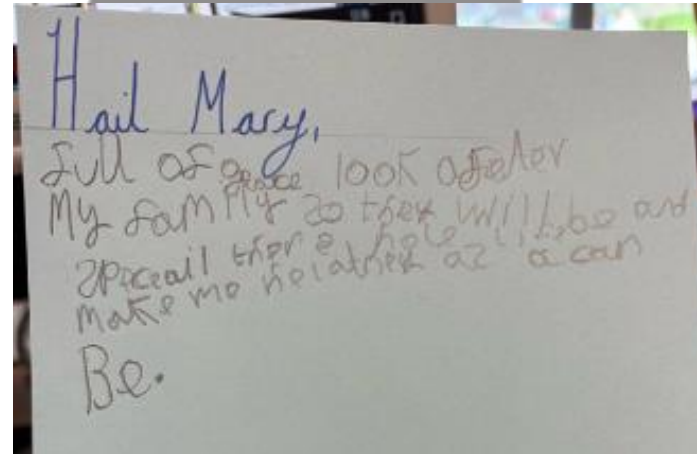 Hail Mary,
full of grace look afeter
My family so they will be and
speceail ther e hole life
make me helathey as a can
Be.